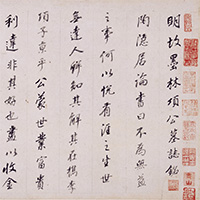 明故墨林項公墓誌銘
陶隱居論書曰不為無益
之事何以悅有涯之生世
無達人解知其解其在檇李
項子京乎公蒙世業富貴
利達非其好也盡以收金